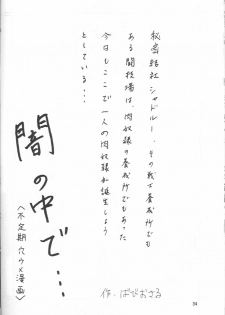 秘密結社シャドルー、その戦士養成所でも
ある闘技場は、肉奴隷の養成所でもあった
今日もここで一人の肉奴隷が誕生しよう
としている…
闇の中で…
〈不定期穴ウメ漫画〉
作・ばびおざる
34